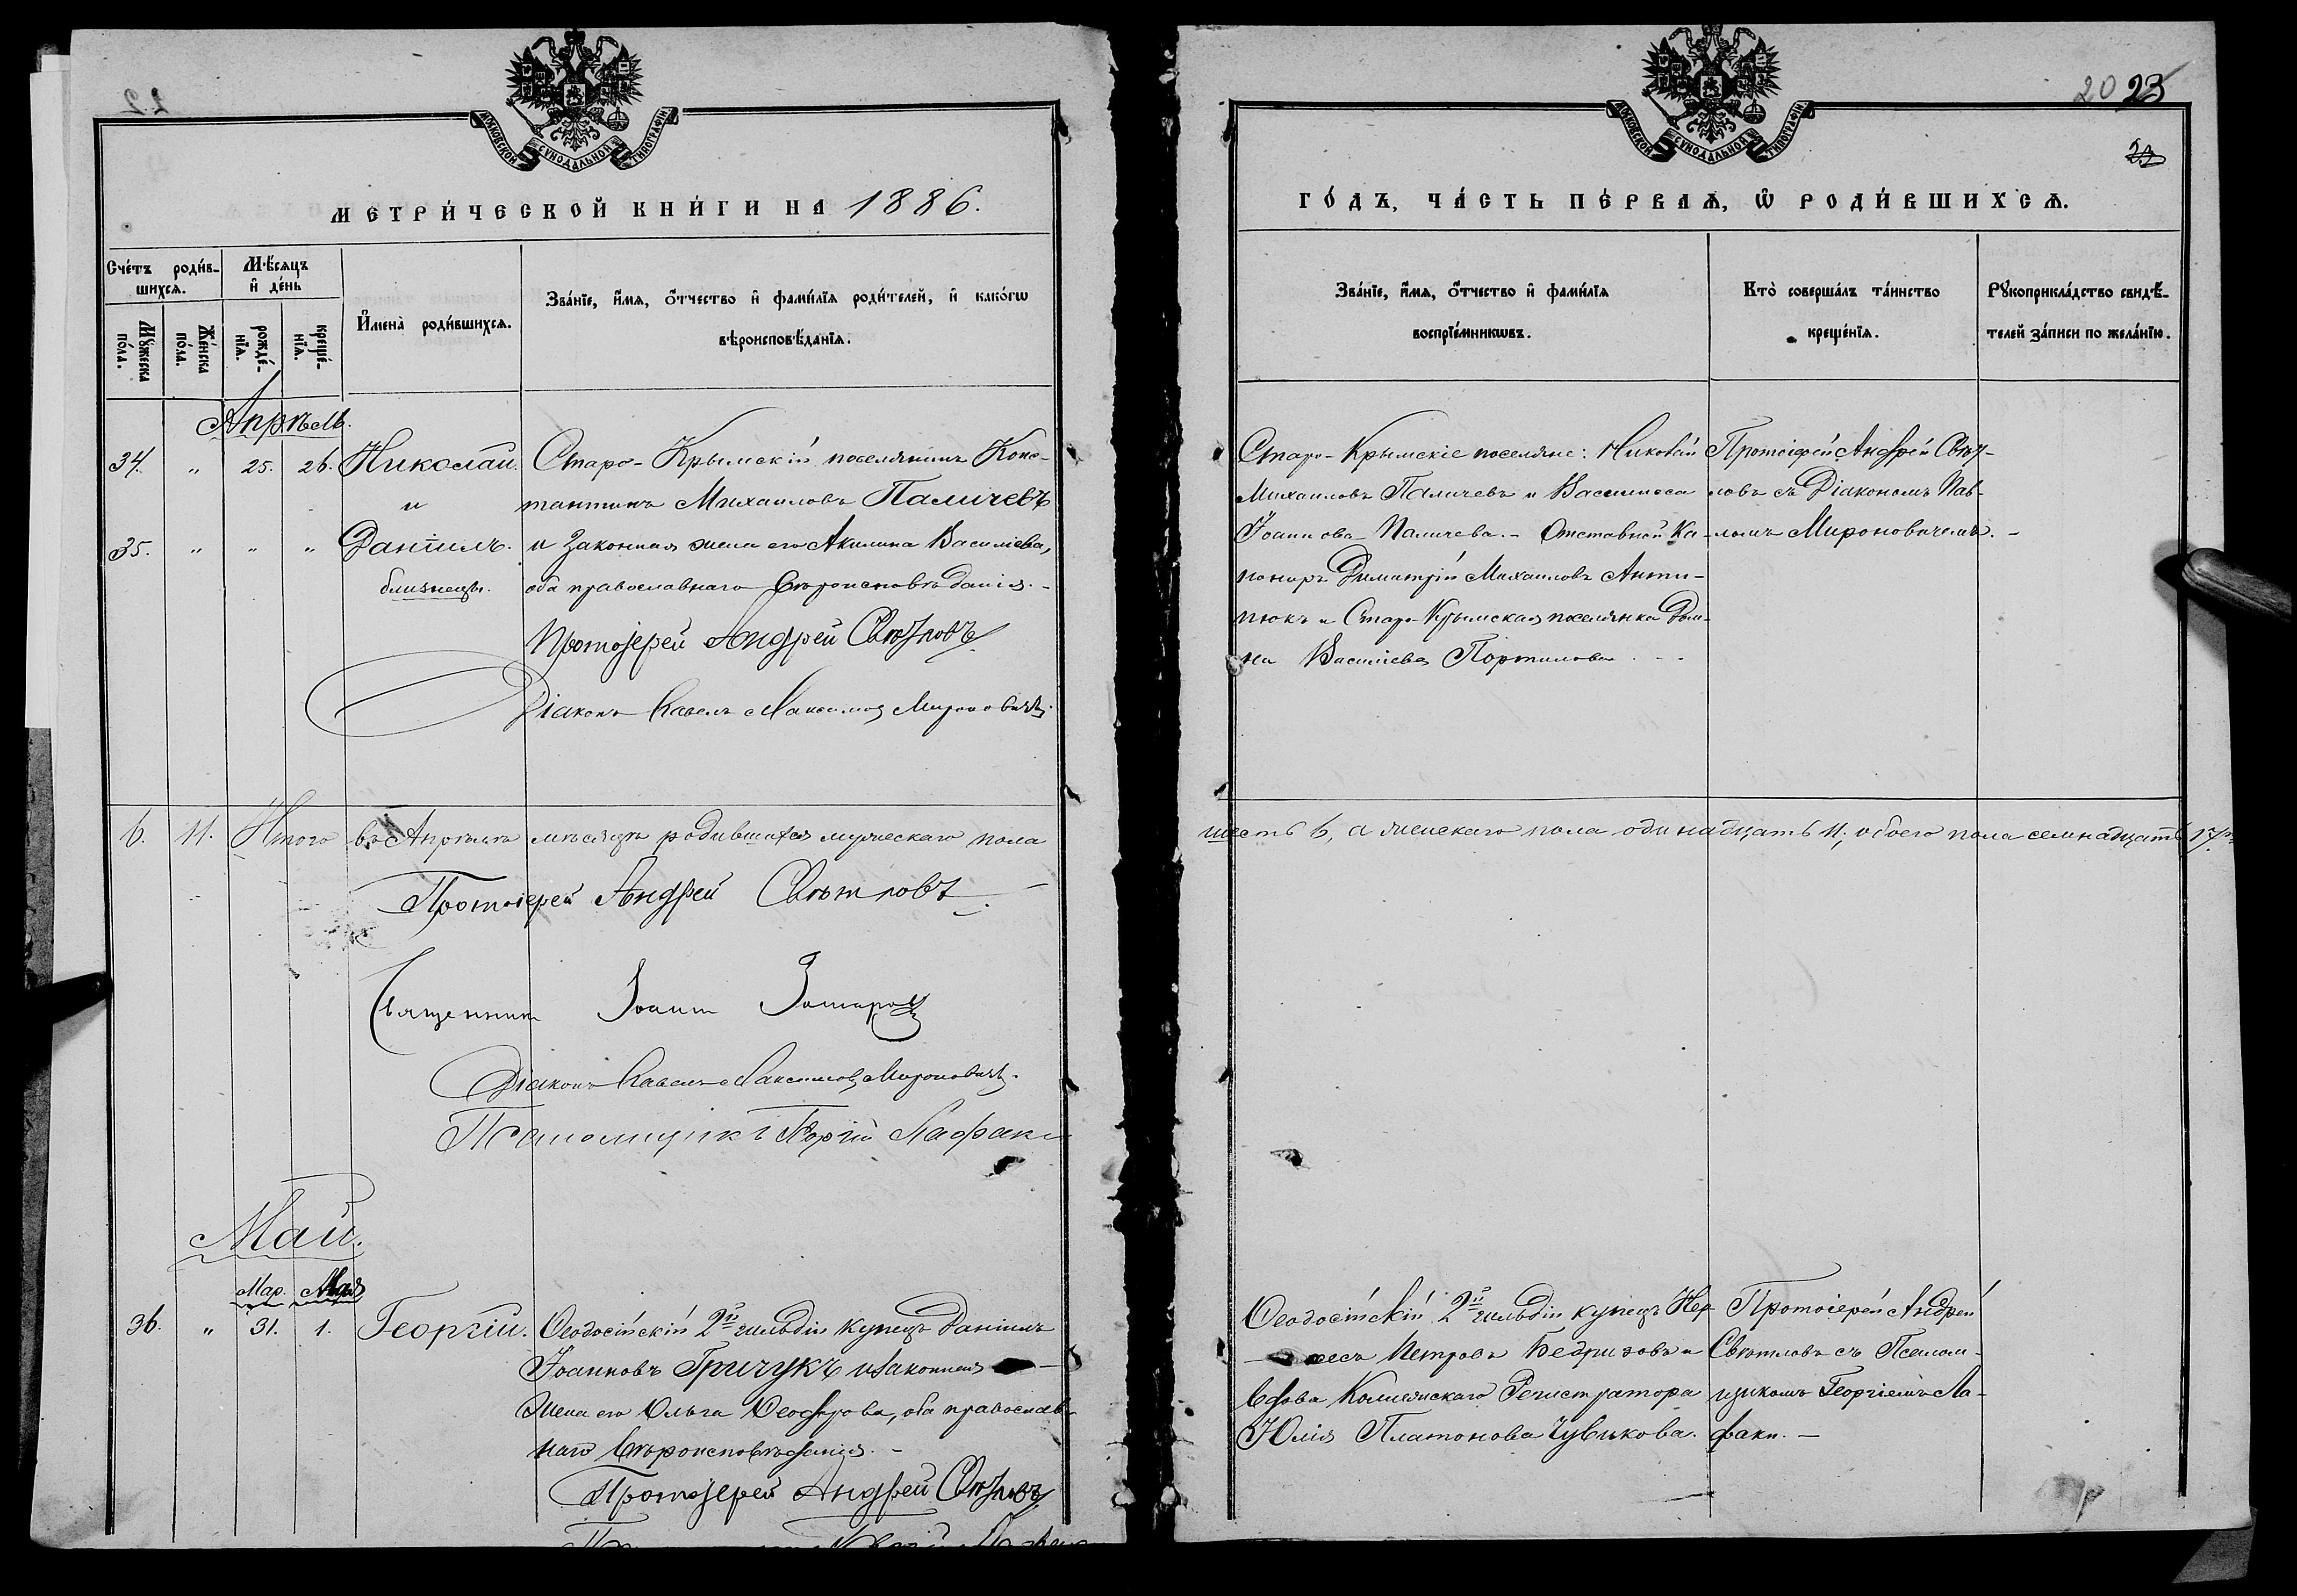 22
20 23
22
МОСКОВСКОЙ СѴНОДАЛЬНОЙ ТИПОГРАФІИ
МЕТРИ́ЧЕСКОЙ КНИ́ГИ НА 1886.
Сче́тъ роди́в-
шихсѧ.
Мѣ́сяцъ
и҆ де́нь
Мꙋ́жеска по́ла.
Же́нска по́ла.
рожде́-
нїѧ.
креще́-
нїѧ.
И҆мена̀ роди́вшихсѧ.
Зва́нїе, и҆́мѧ, ѻ҆́тчество и҆ фами́лїѧ роди́телей, и҆ како́гѡ
вѣроисповѣ́данїѧ.
Апрѣль.
34. " 25. 26. Николай. Старо-Крымскій поселянинъ Конс-
и тантинъ Михаиловъ Паличевъ
35. " " " Даніилъ. и законная жена его Акилина Василіева,
близнецы. оба православнаго вѣроисповѣданія. -
Протоіерей Андрей Свѣтловъ
Діаконъ Павелъ Максимов Мироновичъ.
6. 11. Итого въ Апрѣлѣ мѣсяцѣ родившихся мужескаго пола
Протоіерей Андрей Свѣтловъ
Священник Іоанн
Діаконъ Павелъ Максимов Мироновичъ.
Псаломщикъ Георгій Лафаки
Май.
Мар. Мая
36. " 31. 1. Георгій. Ѳеодосійскій 2й гильдіи купецъ Даніилъ
Іоанновъ Гричукъ и законная
жена его Ольга Ѳеодорова, оба православ-
наго вѣроисповѣданія. -
Протоіерей Андрей Свѣтловъ
МОСКОВСКОЙ СѴНОДАЛЬНОЙ ТИПОГРАФІИ
ГО́ДЪ, ЧА́СТЬ ПЕ́РВАѦ, Ѡ҆ РОДИ́ВШИХСѦ.
Зва́нїе, и҆́мѧ, ѻ҆́тчество и҆ фами́лїѧ
воспрїе́мникѡвъ.
Кто̀ соверша́лъ та́инство
креще́нїѧ.
Рꙋкоприкла́дство свидѣ́-
телей за́писи по жела́нїю.
Старо-Крымскіе поселяне: Николай
Михаиловъ Паличевъ и Василисса
Іоаннова Паличева. - Отставной Ка-
нониръ Димитрій Михаиловъ Анти-
пюкъ и Старо-Крымская поселянка Дом-
на Василіева Портилова
Протоіерей Андрей Свѣт-
ловъ съ Діакономъ Пав-
ломъ Мироновичемъ. -
шесть 6, а женскаго пола одинадцать 11, обоего пола семнадцать 17.
Ѳеодосійскій 2й гильдіи купецъ
Петровъ Бедризовъ и
вдова Коллежскаго Регистратора
Юлія Платонова Чувикова.
Протоіерей Андрей
Свѣтловъ съ Псалом-
щикомъ Георгіемъ Ла-
факи. -